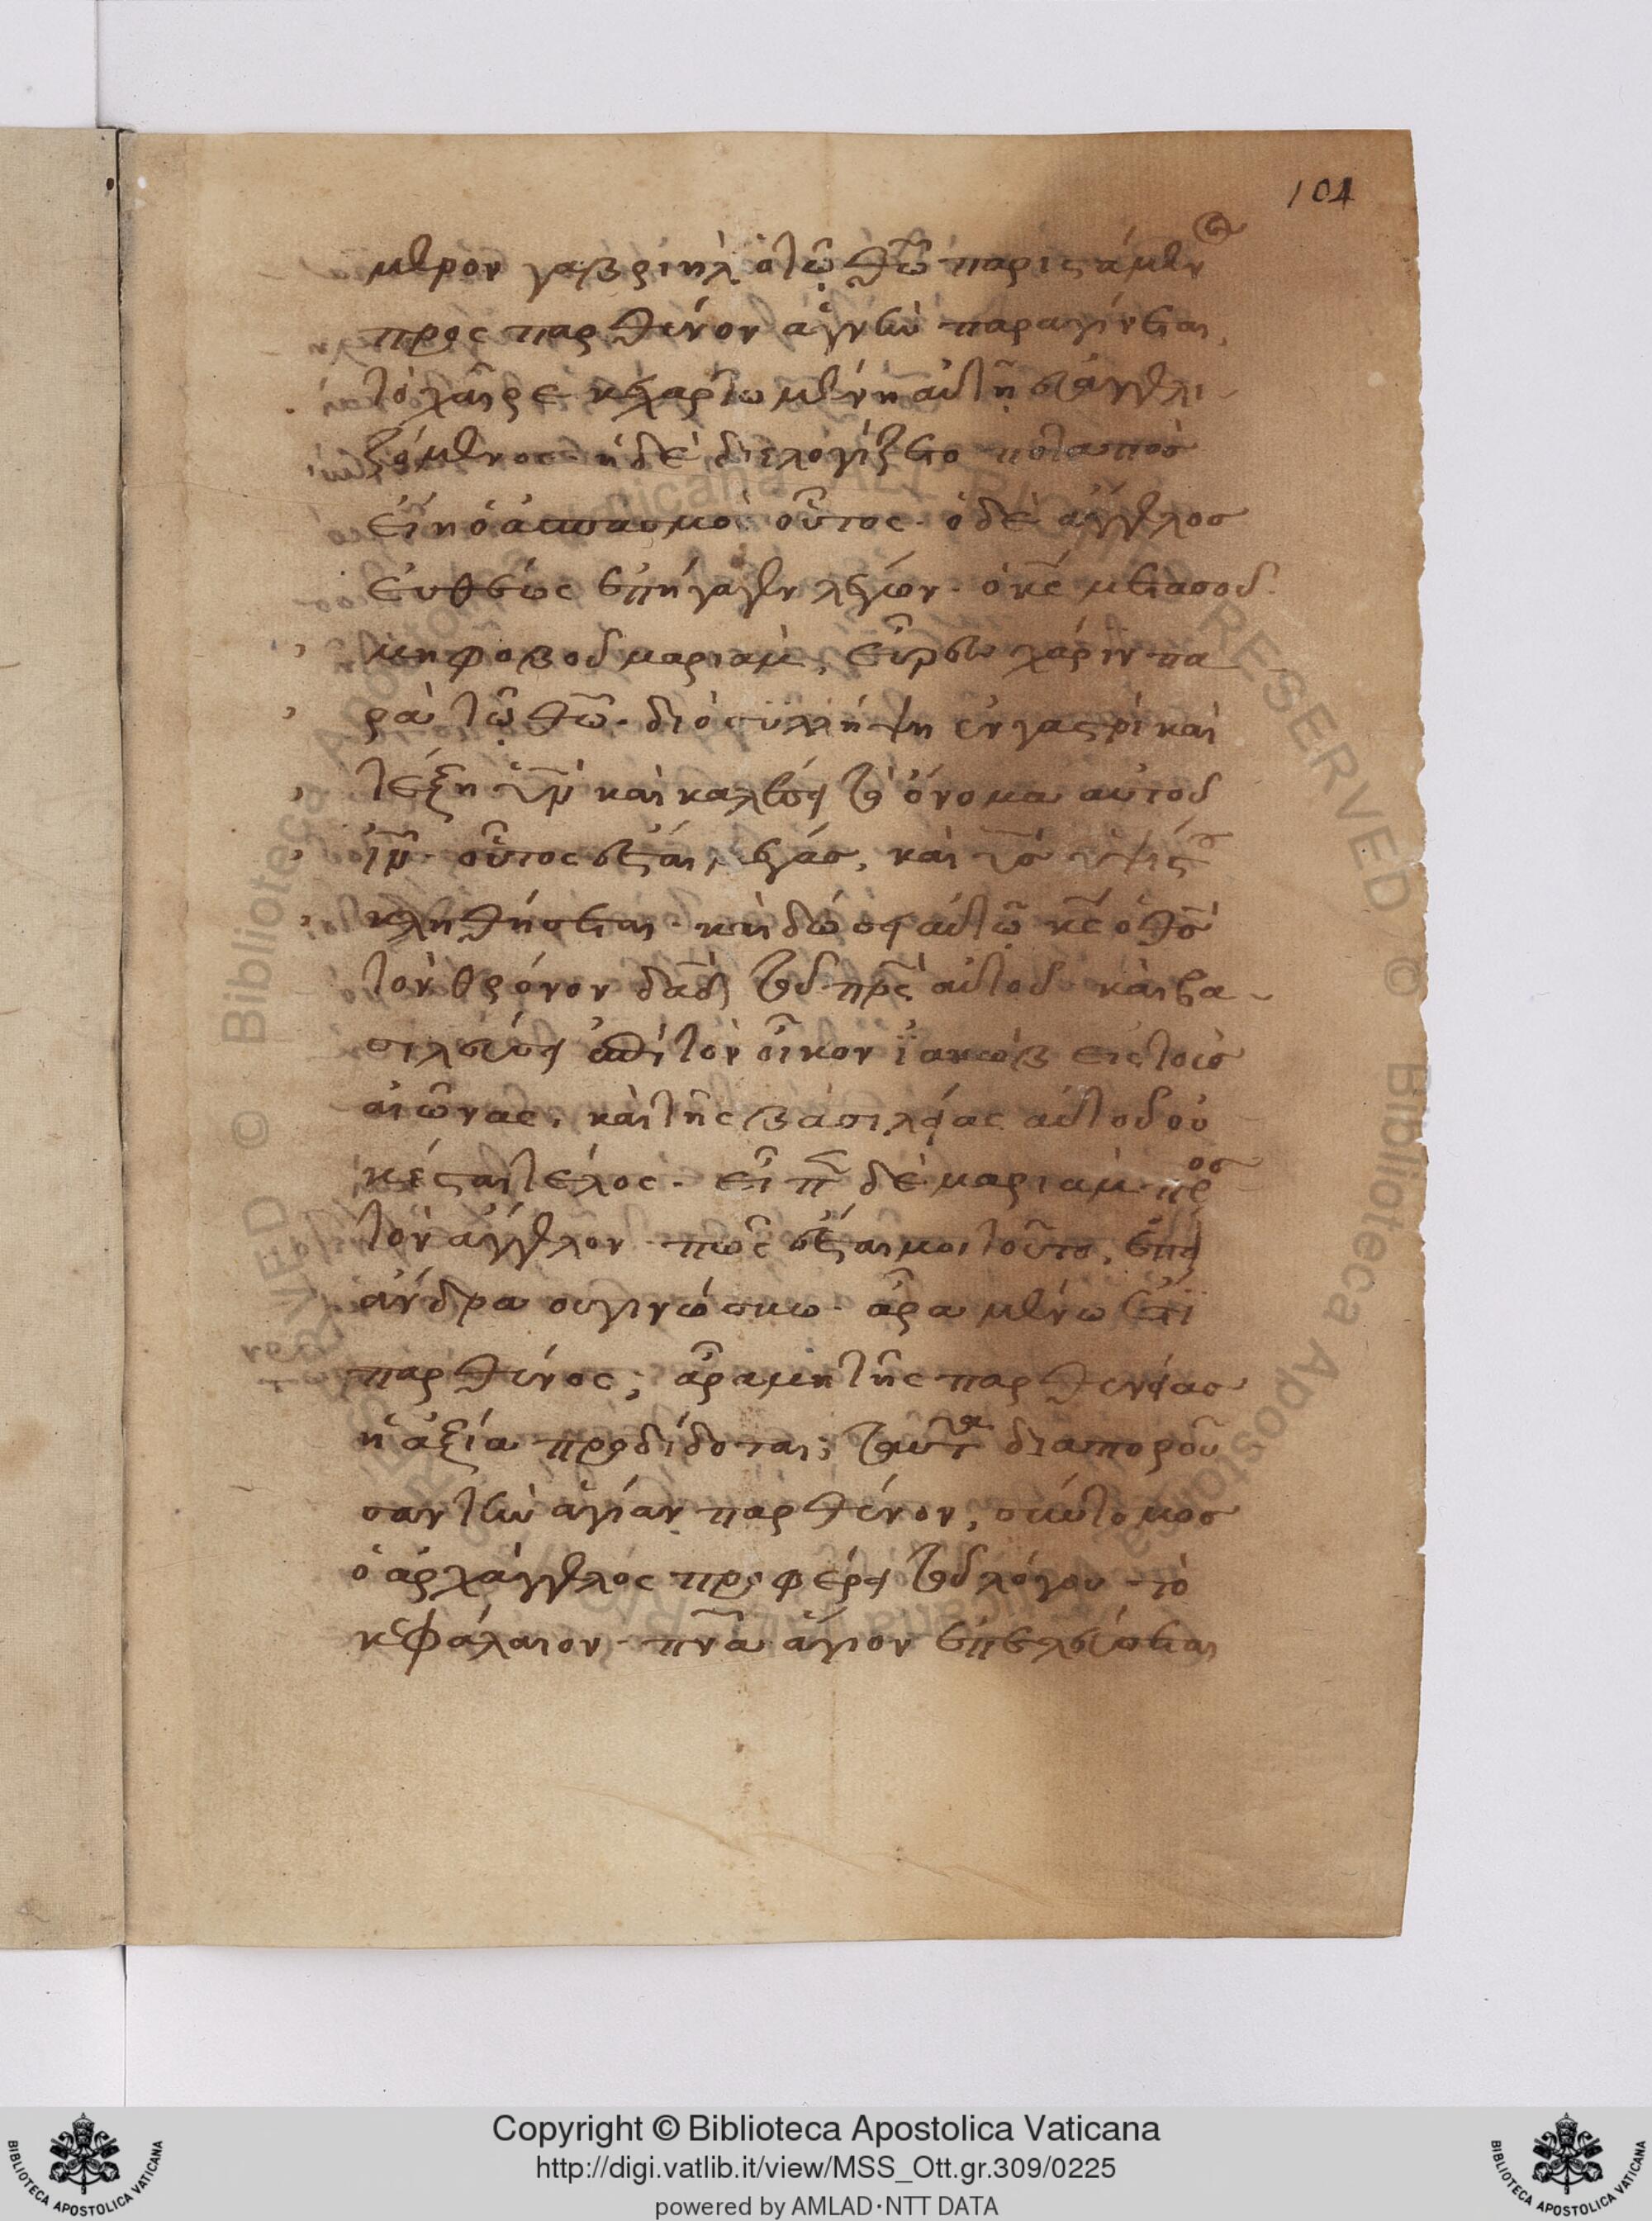 104
μερον γαβριὴλ ὁ τῶ θῶ παριστάμεν(ος)
πρὸς παρθένον ἁγνὴν παραγίνεται
τὸ χαῖρε κεχαριτωμένη αὐτῆ εὐαγγελι-
ζόμενος· ἡ δὲ διελογίζετο ποταπὸς
εἴη ὁ ἀσπασμὸς οὗτος· ὁ δὲ ἄγγελος
εὐθέως ἐπήγαγεν λέγων· ὁ κς μετὰ σοῦ·
μὴ φοβοῦ μαριάμ, εὗρες χάριν πα
ρὰ τῶ θῶ· διὸ συλλήψη ἐν γαστρὶ καὶ
τέξη υν καὶ καλέσεις τὸ ὄνομα αὐτοῦ
ιν· οὗτος ἔσται μέγας, καὶ υς ὑψίστου
κληθήσεται· καὶ δώσει αὐτῶ κς ὁ θς
τὸν θρόνον δαδ τοῦ πρς αὐτοῦ καὶ βα-
σιλεύσει ἐπὶ τὸν οἶκον ἰακὼβ εἰς τοὺς
αἰῶνας, καὶ τῆς βασιλείας αὐτοῦ οὐ
κ ἔσται τέλος· εἶπε δὲ μαριὰμ πρὸς
τὸν ἄγγελον· πῶς ἔσται μοι τοῦτο, ἐπεὶ
ἄνδρα οὐ γινώσκω· ἆρα μένω ἔτι
παρθένος; ἆρα μὴ τῆς παρθενείας
ἡ ἀξία προδίδοται; ταῦτα διαποροῦ
σαν τὴν ἁγίαν παρθένον, σύντομος
ὁ ἀρχάγγελος προφέρει τοῦ λόγου τὸ
κεφάλαιον· πνα ἅγιον ἐπελεύσεται
Copyright © Biblioteca Apostolica Vaticana
http://digi.vatlib.it/view/MSS_Ott.gr.309/0225
powered by AMLAD·NTT DATA